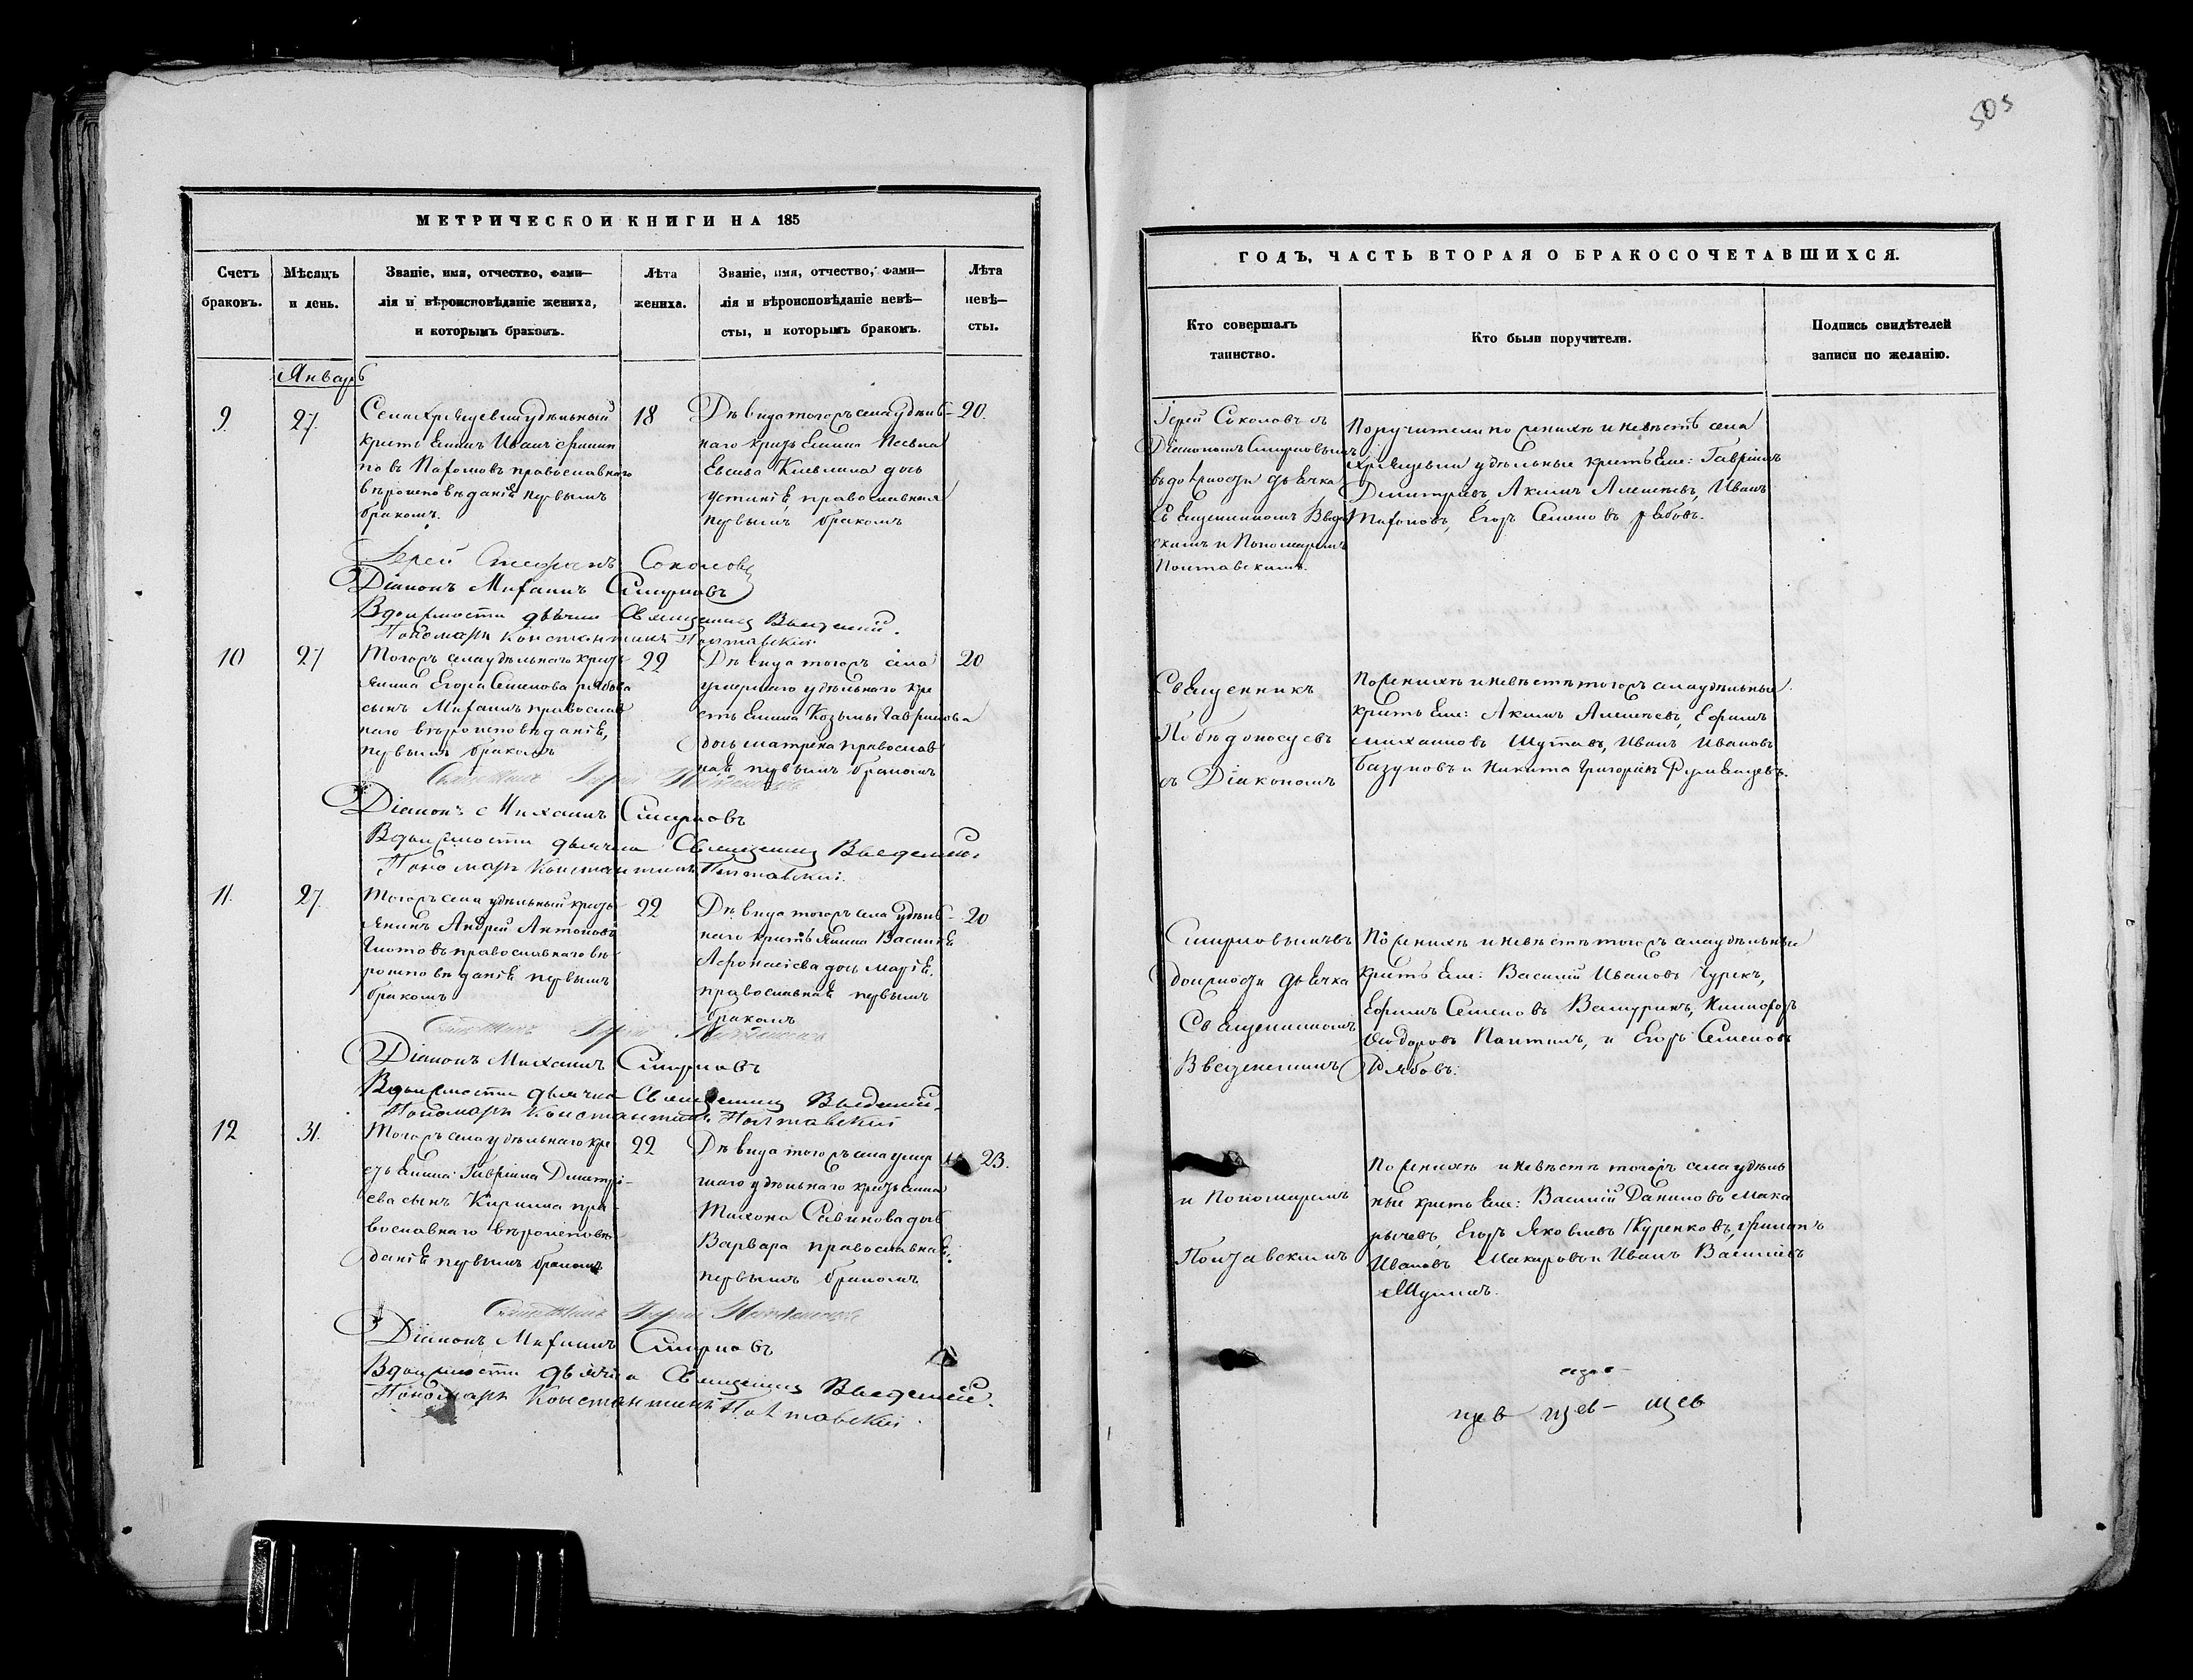 505
МЕТРИЧЕСКОЙ КНИГИ НА 185
Счетъ браковъ.
Мѣсяцъ и день.
Званіе, имя, отчество, фами-
лія и вѣроисповѣданіе жениха,
и которымъ бракомъ.
Лѣта жениха.
Званіе, имя, отчество, фами-
лія и вѣроисповѣданіе невѣ-
сты, и которымъ бракомъ.
Лѣта невѣ-
сты.
Январь
9.
27.
Села Хрящевки удѣльный
крестьянинъ Иванъ Филип
повъ православнаго
вѣроисповѣданія первымъ
бракомъ.
18
Дѣвица тогожъ села удѣль-
наго крестьянина
дочь
Устинія, православная
первымъ бракомъ
20.
Іерей Стефанъ Соколовъ
Діаконъ Михаилъ Смирновъ
Въ должности дьячка Священникъ Введенскій.
Пономарь Константинъ Полтавскій.
10
27
Тогожъ села удѣльнаго кресть
янина Егора Семенова Рябова
сынъ Михаилъ православ
наго вѣроисповѣданія,
первымъ бракомъ
22
Дѣвица тогожъ села
умершаго удѣльнаго кре
стьянина Козьмы Гаврилова
дочь Матрена православ
ная первымъ бракомъ
20
Діаконъ Михаилъ Смирновъ
Въ должности дьячка Священникъ Введенскій
Пономарь Константинъ Полтавскій.
11.
27.
Тогожъ села удѣльный кресть
янинъ Андрей Антоновъ
православнаго вѣ
роисповѣданія первымъ
бракомъ
22
Дѣвица тогожъ села удѣль-
наго крестьянина Василья
Афонасіева дочь Марія.
православная первымъ
бракомъ
20
Діаконъ Михаилъ Смирновъ
Въ должности дьячка Священникъ Введенскій.
Пономарь Константинъ Полтавскій
12
31.
Тогожъ села удѣльнаго кре
стьянина Гавріила Дмитрі-
ева сынъ Кирилла пра
вославнаго вѣроисповѣ
данія первымъ бракомъ
22
Дѣвица тогожъ села умер
шаго удѣльнаго крестьянина
Тихона Савинова дочь
Варвара православная.
первымъ бракомъ
23.
Діаконъ Михаилъ Смирновъ
Въ должности дьячка Священникъ Введенскій.
Пономарь Константинъ Полтавскій.
ГОДЪ, ЧАСТЬ ВТОРАЯ О БРАКОСОЧЕТАВШИХСЯ.
Кто совершалъ
таинство.
Кто были поручители.
Подпись свидѣтелей
записи по желанію.
Іерей Соколовъ съ
Діакономъ Смирновымъ
въ должности дьячка
Священникомъ Введен
скимъ и Пономаремъ
Полтавскимъ.
Поручители по женихѣ и невѣстѣ села
Хрящевки удѣльные крестьяне: Гавріилъ
Дмитріевъ, Акимъ Алексѣевъ, Иванъ
Егоръ Семеновъ Рябовъ.
Священникъ
Победоносцевъ
съ Діакономъ
По женихѣ и невѣстѣ тогожъ села удѣльные
крестьяне: Акимъ Алексѣевъ, Ефимъ
Михаиловъ Шутовъ, Иванъ Ивановъ
Базуновъ и Никита Григорьевъ Румянцевъ.
Смирновымъ въ
должности дьячка
Священникомъ
Введенскимъ
По женихѣ и невѣстѣ тогожъ села удѣльные
крестьяне: Василій Ивановъ
Ефимъ Семеновъ Никифоръ
Ѳедоровъ и Егоръ Семеновъ
Рябовъ.
и Пономаремъ
Полтавскимъ
По женихѣ и невѣстѣ тогожъ села удѣль
ные крестьяне: Василій Даниловъ Мака
рычевъ, Егоръ Яковлевъ Куренковъ, Филипъ
Ивановъ Макаровъ и Иванъ Васильевъ
цев цев- щев